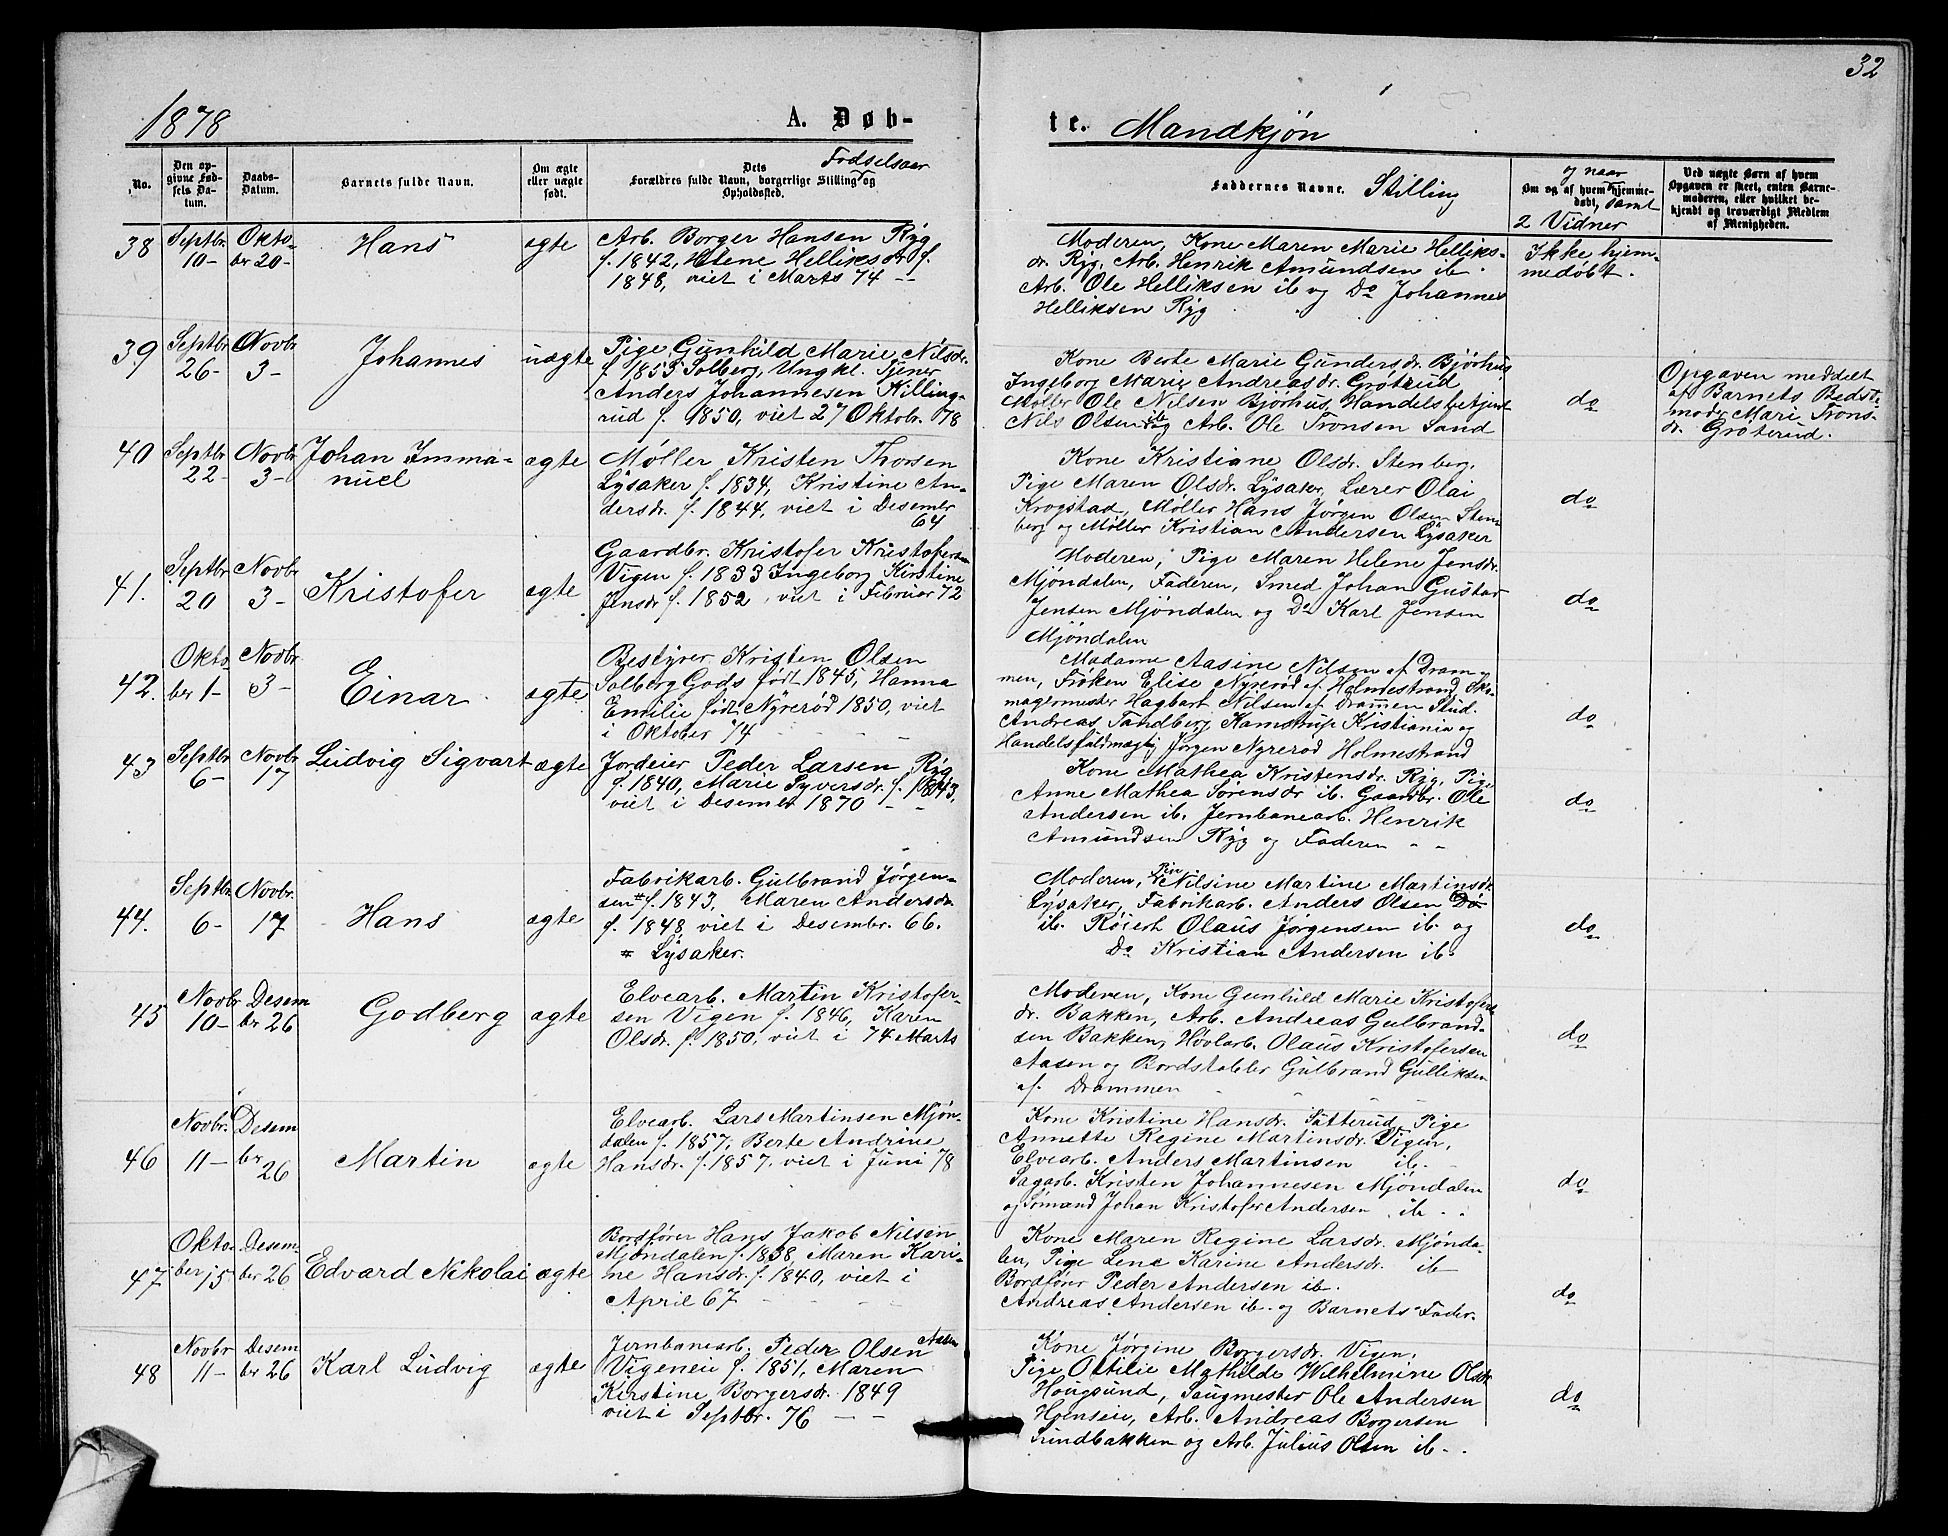 32
1878
A. Døb-
te. Mandkjøn
No.
Den op-
givne Fød-
sels Da-
tum.
Daabs-
Datum.
Barnets fulde Navn.
Om ægte
eller uægte
født.
Dets Fødselsaar
Forældres fulde Navn, borgerlige Stilling og
Opholdssted.
Faddernes Navne. Stilling
og naar
Om og af hvem hjemme-
døbt, samt
2 Vidner
Ved uægte Barn af hvem
Opgaven er skeet, enten Barne-
moderen, eller hvilket be-
kjendt og troværdigt Medlem
af Menigheden.
38
Septbr.
10-
Okto-
ber 20-
Hans
ægte
Arb. Borger Hansen Ryg
f. 1842, Helene Helliksdr f.
1848, viet i Marts 74 --
Moderen, Kone Maren Marie Helliks-
dr. Ryg, Arb. Henrik Amundsen ib.
Arb. Ole Helliksen ib og Do Johannes
Helliksen Ryg
Ikke hjem-
medøbt.
39
Septbr
26-
Novbr
3-
Johannes
uægte
Pige Gunhild Marie Nilsdr.
f. 1853 Solberg, Ungkl. Tjener
Anders Johannesen Killing-
rud f. 1850, viet 27 Oktobr. 78
Kone Berte Marie Gundersdr. Bjørhus
Ingeborg Marie Andreasdr. Grøterud,
Møller Ole Nilsen Bjørhus, Handelsbetjent
Nils Olsen ib og Arb. Ole Tronsen Sand
do
Opgaven meddelt
af Barnets Bedste
modr Mari Trons-
dr. Grøterud.
40
Septbr
22-
Novbr
3-
Johan Imma-
nuel
ægte
Møller Kristen Thorsen
Lysaker f. 1834, Kristine An-
dersdr. f. 1844, viet i Desembr
64
Kone Kristiane Olsdr. Stenberg,
Pige Maren Olsdr. Lysaker, Lærer Olai
Krogstad, Møller Hans Jørgen Olsen Sten-
berg og Møller Kristian Andersen Lysaker
do
41.
Septbr
20
Novbr
3-
Kristofer
ægte
Gaardbr. Kristofer Kristofersen
Vigen f. 1833 Ingeborg Kirstine
Jensdr f. 1852, viet i Februar 72
Moderen, Pige Maren Helene Jensdr.
Mjøndalen, Faderen, Smed Johan Gustav
Jensen Mjøndalen og Do Karl Jensen
Mjøndalen
do
42.
Okto-
ber 1-
Novbr
3-
Einar
ægte
Bestyrer Kristen Olsen
Solberg Gods født 1845, Hanna
Emilie født Nyrerød 1850, viet
i Oktober 74
Madame Aasine Nilsen af Dram-
men, Frøken Elise Nyrerød af Holmestrand, Sko-
magermester Hagbart Nilsen af Drammen Stud.
Andreas Tandberg Kamstrup Kristiania og
Handelsfuldmægtig Jørgen Nyrerød Holmestrand
do
43
Septbr
6-
Novbr
17
Ludvig Sigvart
ægte
Jordeier Peder Larsen Ryg
f. 1840, Marie Syversdr. f. 1843,
viet i Desember 1870 - -
Kone Mathea Kristensdr. Ryg, Pige
Anne Mathea Sørensdr ib. Gaardbr. Ole
Andersen ib. Jernbanearb. Henrik
Amundsen Ryg og Faderen - -
do
44.
Septbr.
6-
Novbr.
17
Hans
ægte
Fabrikarb. Gulbrand Jørgen-
sen # f. 1843, Maren Andersdr
f. 1848 viet i Desembr. 66.
# Lysaker.
Moderen, Pige Nilsine Martine Martinsdr
Lysaker, Fabrikarb. Anders Olsen Do
ib. Røierh Olaus Jørgensen ib. og
Do Kristian Andersen ib.
do
45
Novbr
10-
Desem
ber 26
Godberg
ægte
Elvearb. Martin Kristofer-
sen Vigen f. 1846, Karen
Olsdr. f. 1850, viet i 74 Marts
Moderen, Kone Gunhild Marie Kristofers
dr. Bakken, Arb. Andreas Gulbrand-
sen Bakken, Høvlarb. Olaus Kristofersen
Aasen og Bordstabler Gulbrand Gulliksen
af Drammen
do
46
Novbr.
11-
Desem
ber
26
Martin
ægte
Elvearb. Lars Martinsen Mjøn-
dalen f. 1857, Berte Andrine
Hansdr. f. 1857, viet i Juni 78
Kone Kristine Hansdr. Sätterud, Pige
Annette Regine Martinsdr. Vigen,
Elvearb. Anders Martinsen ib.
Sagarb. Kristen Johannesen Mjøndalen
og Sømand Johan Kristofer Andersen ib - -
do
47
Okto-
ber 15
Desem-
ber 26
Edvard Nikolai
ægte
Bordfører Hans Jakob Nilsen
Mjøndalen f. 1838, Maren Kari-
ne Hansdr. f. 1840, viet i
April 67
Kone Maren Regine Larsdr. Mjønda-
len, Pige Lene Karine Andersdr. ib
Bordfører Peder Andersen ib.
Andreas Andersen ib. og Barnets Fader.
do
48
Novbr
11-
Desem
ber 26
Karl Ludvig
ægte
Jernbanearb. Peder Olsen Aasen
Vigeneie f. 1851, Maren
Kirstine Borgersdr. 1849
viet i Septbr. 76 - -
Kone Jørgine Borgersdr. Vigen,
Pige Ottilie Mathilde Wilhelmine Olsdr
Hougsund, Saugmester Ole Andersen
Horneie, Arb. Andreas Borgersen
Sundbakken og Arb. Julius Olsen ib-.
do